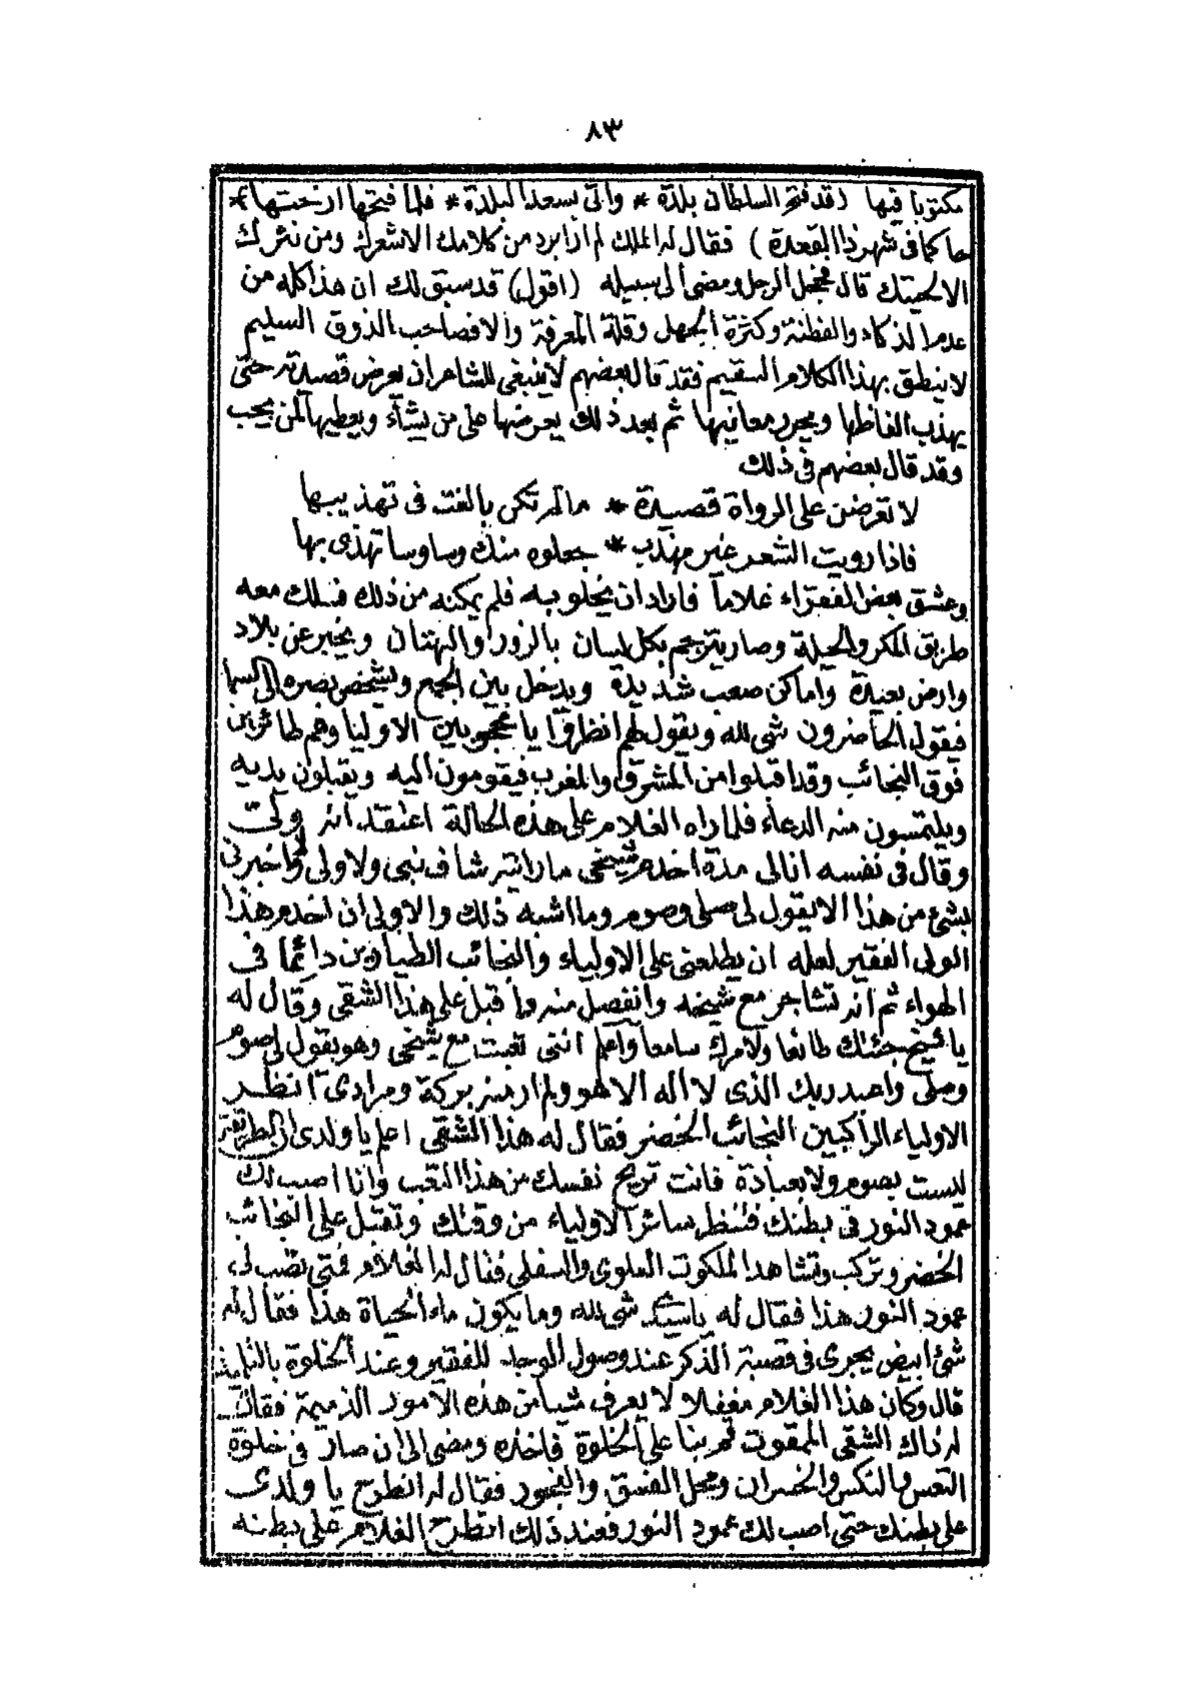 ٨٣
مكتوبا فيها (قد فتح السلطان بلدة * واتى بسعد البلدة * فلما فتحها ارختها *
حا كما فى شهر ذا القعدة) فقال له الملك لم ار ابرد من كلامك الا شعرك ومن نثرك
الا لحيتك قال فخجل الرجل ومضى الى سبيله (اقول) قد سبق لك ان هذا كله من
عدم الذكاء والفطنة وكثرة الجهل وقلة المعرفة والا فصاحب الذوق السليم
لا ينطق بهذا الكلام السقيم فقد قال بعضهم لا ينبغى للشاعر ان يعرض قصيدته حتى
يهذب الفاظها ويحرر معانيها ثم بعد ذلك يعرضها على من يشآء ويعطيها لمن يحب
وقد قال بعضهم فى ذلك
لا تعرضن على الرواة قصيدة * ما لم تكن بالغت فى تهذيبها
فاذا رويت الشعر غير مهذب * جعلوه منك وساوسا تهذى بها
وعشق بعض الفقراء غلاماً فاراد ان يختلى به فلم يمكنه من ذلك فسلك معه
طريق المكر والحيلة وصار يترجم بكل لسان بالزور والبهتان ويخبر عن بلاد
وارض بعيدة واماكن صعب شديدة ويدخل بين الجمع ويشخص بصره الى السما
فيقول الحاضرون شى لله ويقول لهم انظروا يا محجوبين الاوليا وهم طائرين
فوق النجائب وقد اقبلوا من المشرق والمغرب فيقومون اليه ويقبلون يديه
ويلتمسون منه الدعاء فلما راه الغلام على هذه الحالة اعتقد انه ولى
وقال فى نفسه انا لى مدة اخدم شيخى ما رايته شاف نبى ولا ولى ولا اخبرنى
بشئ من هذا الا يقول لى صلى وصوم وما اشبه ذلك والاولى ان اخدم هذا
الولى الفقير لعله ان يطلعنى على الاولياء والنجائب الطيارين دائما فى
الهواء ثم انه تشاجر مع شيخه وانفصل منه واقبل على هذا الشقى وقال له
يا شيخ جئتك طائعا ولامرك سامعا واعلم اننى تعبت مع شيخى وهو يقول لى صوم
وصلى واعبد ربك الذى لا اله الا هو ولم ار منه بركة ومرادى انظر
الاولياء الراكبين النجائب الخضر فقال له هذا الشقى اعلم يا ولدى ان الطريقة
ليست بصوم ولا بعبادة فانت تريح نفسك من هذا التعب وانا اصب لك
عمود النور فى بطنك فتنظر سائر الاولياء من وقتك وتقبل على النجائب
الخضر وتركب وتشاهد الملكوت العلوى والسفلى فقال له الغلام فمتى تصب لى
عمود النور هذا فقال له يا سيدى شى لله وما يكون ماء الحياة هذا فقال له
شئ ابيض يجرى فى قصبة الذكر عند وصول الوجد للفقير وعند الخلوة
قال وكان هذا الغلام مغفلا لا يعرف شيا من هذه الامور الذميمة فقال
له ذاك الشقى الممقوت قم بنا على الخلوة فاخذه ومضى الى ان صار فى خلوة
التعس والنكس والخسران ومحل الفسق والفجور فقال له انطرح يا ولدى
على بطنك حتى اصب لك عمود النور فعند ذلك انطرح الغلام على بطنه